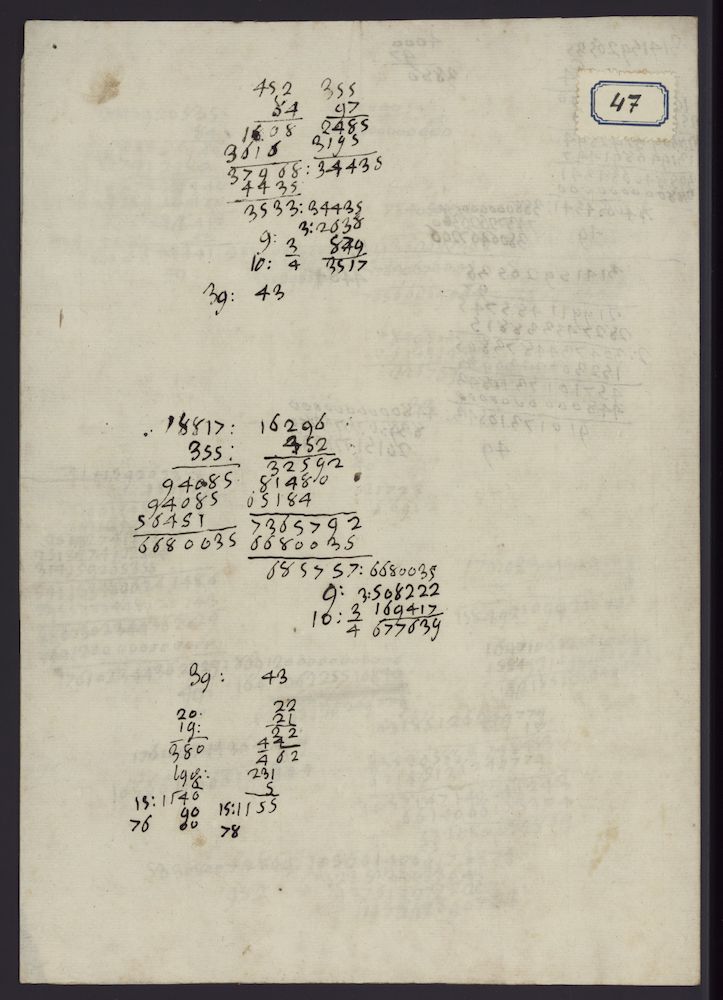 47
452 355
84 97
1808 2485
3616 3195
37968:34435
4435
3533:34435
3:2638
9: 3 879
10: 4 3517
39: 43
18817: 16296
355: 452
94085 32592
94085 81480
56451 65184
6680035 7365792
6680035
685757:6680035
9: 3:508222
10: 3 169417
4 677639
39: 43
20. 22
19: 21
380 22
44
462
231
5
15:1140 15:1155
90
76 60 78